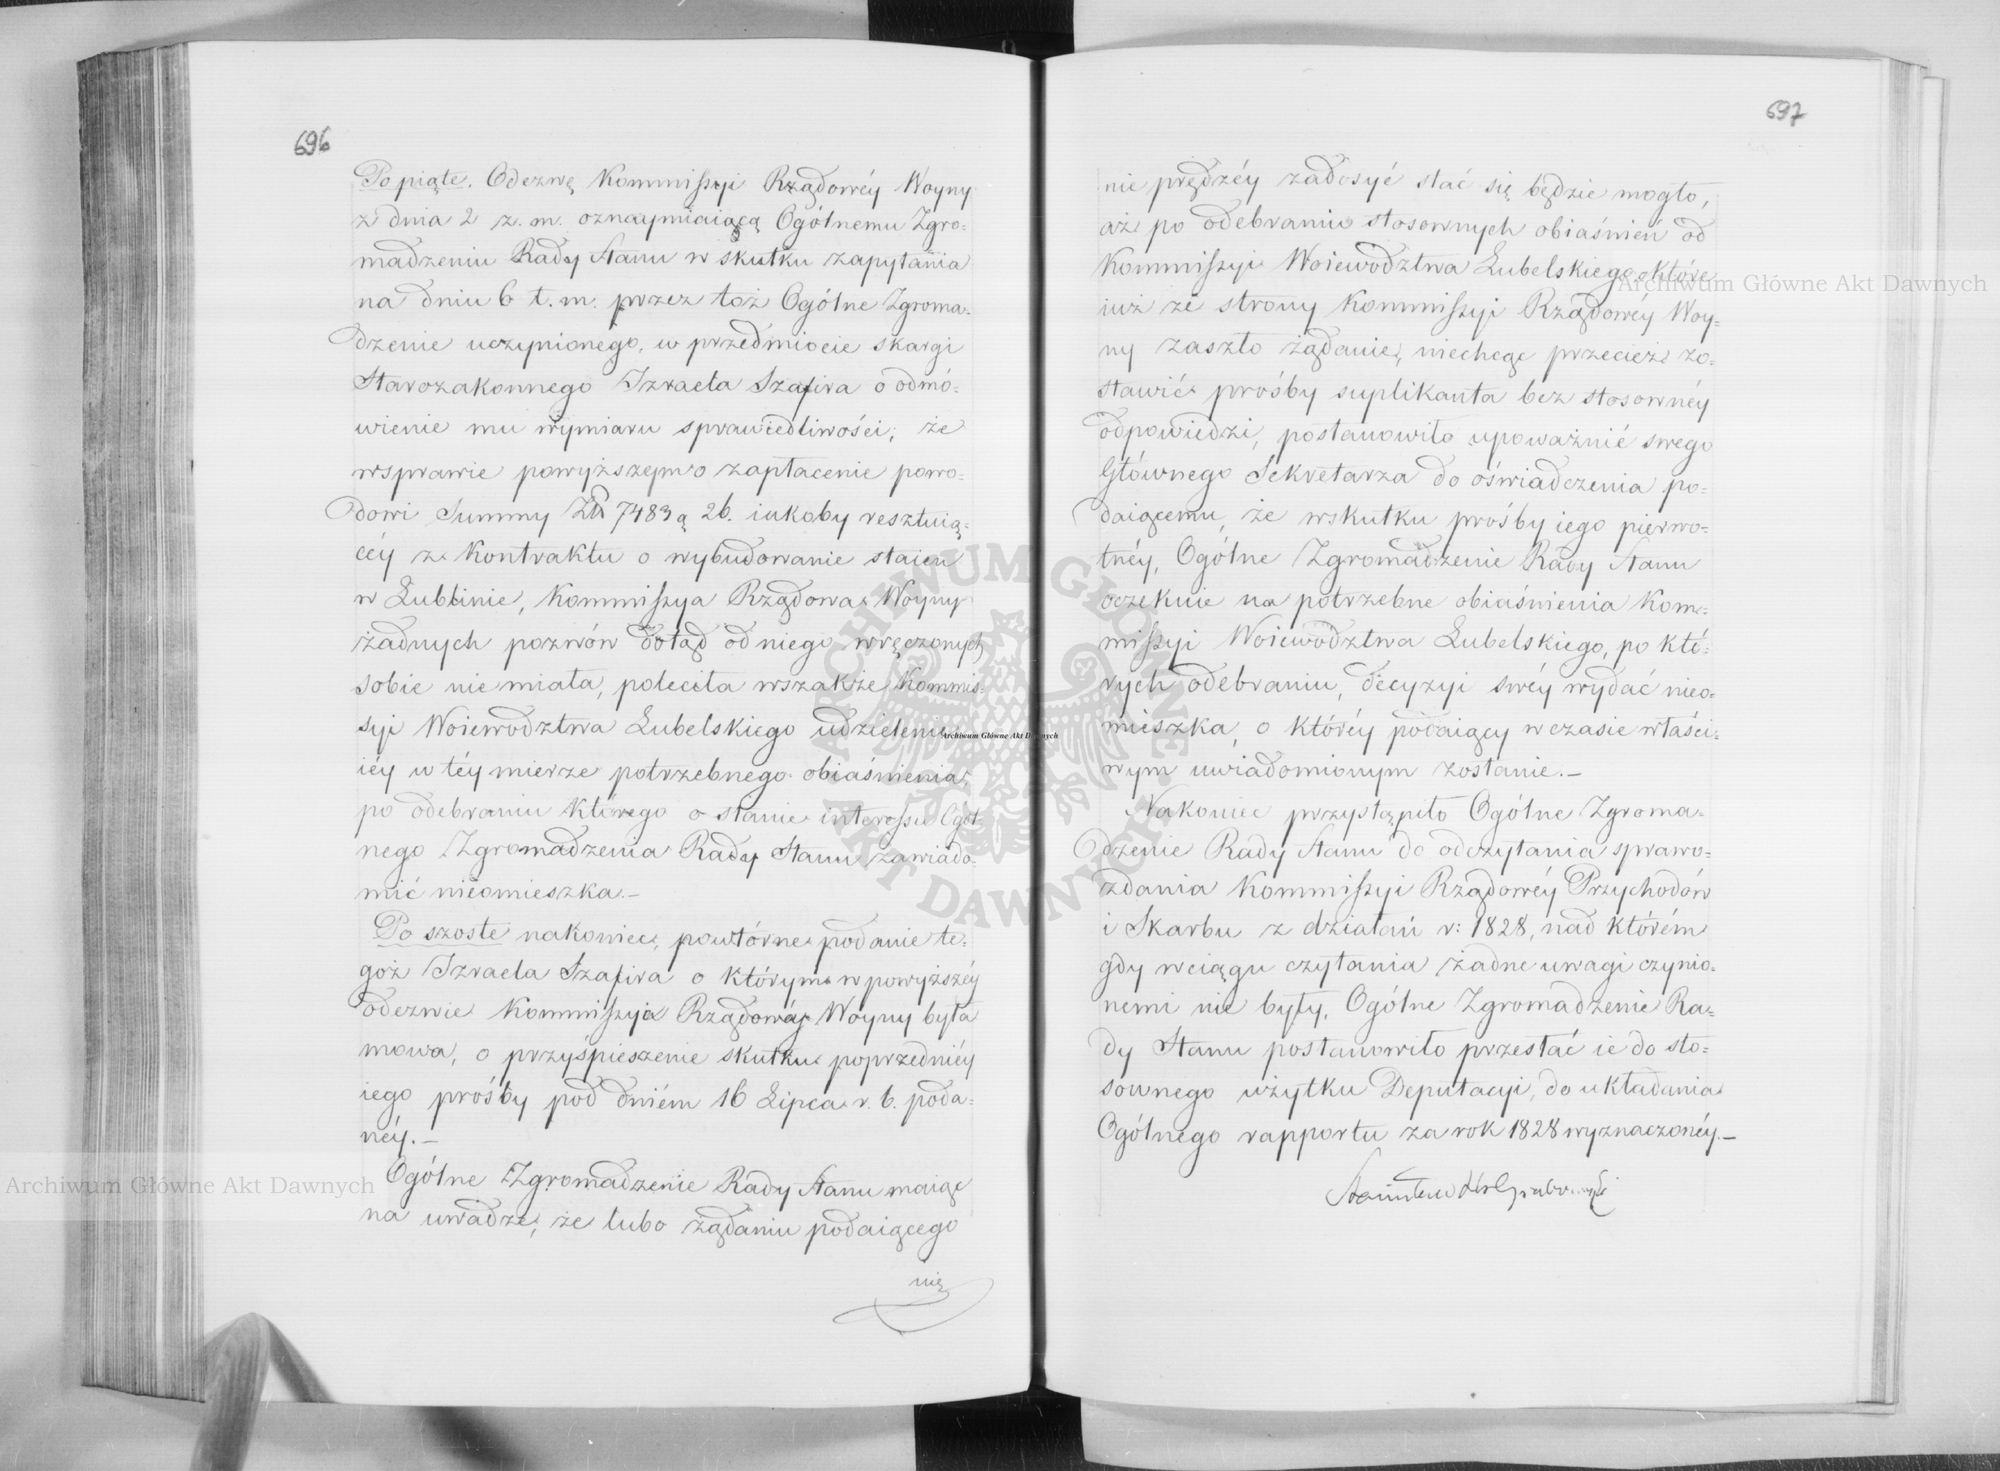 696
Po piąte. Odezwę Kommissyi Rządowéy Woyny
z dnia 2 z. m. oznaymiaiącą Ogólnemu Zgro-
madzeniu Rady Stanu w skutku zapytania
na dniu 6 t. m. przez toż Ogólne Zgroma-
dzenie uczynionego, w przedmiocie skargi
Starozakonnego Izraela Szafira o odmó-
wienie mu wymiaru sprawiedliwości, że
wsprawie powyższéy o zapłacenie powo-
dowi Summy 7483 26. iakoby resztuią-
céy z Kontraktu o wybudowanie staien
w Lublinie, Kommissya Rządowa Woyny
żadnych pozwów dotąd od niego wręczonych
sobie nie miała, poleciła wszakże Kommis-
syi Woiewodztwa Lubelskiego udzielenie
iéy w téy mierze potrzebnego obiaśnienia,
po odebraniu którego o stanie interessu Ogól-
nego Zgromadzenia Rady Stanu zawiado-
mić nieomieszka.-
Po szoste nakoniec, powtórne podanie te-
goż Izraela Szafira o którym w powyższéy
odezwie Kommissyi Rządowéy Woyny była
mowa, o przyśpieszenie skutku poprzedniéy
iego prośby pod dniém 16 Lipca r. b. poda-
néy.-
Ogólne Zgromadzenie Rady Stanu maiąc
na uwadze, że lubo żądaniu podaiącego
nie
697
nie prędzéy zadosyć stać się będzie mogło,
aż po odebraniu stosownych obiaśnień od
Kommissyi Woiewodztwa Lubelskiego, o które
iuż ze strony Kommissyi Rządowéy Woy-
ny zaszło żądanie, niechcąc przecież zo-
stawić prośby suplikanta bez stosownéy
odpowiedzi, postanowiło upoważnić swego
Głównego Sekretarza do oświadczenia po-
daiącemu, że wskutku prośby iego pierwo-
tnéy, Ogólne Zgromadzenie Rady Stanu
oczekuie na potrzebne obiaśnienia Kom-
missyi Woiewodztwa Lubelskiego, po któ-
rych odebraniu, decyzyi swéy wydać nieo-
mieszka, o któréy podaiący w czasie właści-
wym uwiadomionym zostanie.-
Nakoniec przystąpiło Ogólne Zgroma-
dzenie Rady Stanu do odczytania sprawo-
zdania Kommissyi Rządowéy Przychodów
i Skarbu z działań r: 1828, nad którém
gdy wciągu czytania żadne uwagi czynio-
nemi nie były, Ogólne Zgromadzenie Ra-
dy Stanu postanowiło przesłać ie do sto-
sownego użytku Deputacyi, do układania
Ogólnego rapportu za rok 1828 wyznaczonéy.-
Stanisław Grabowski
Archiwum Główne Akt Dawnych
Archiwum Główne Akt Dawnych
Archiwum Główne Akt Dawnych
ARCHIWUM GŁÓWNE
AKT DAWNYCH